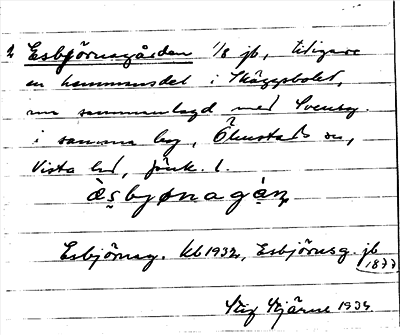 2 Esbjörnsgården 1/8 jb, tidigare
en hemmansdel i Skäggebolet,
nu sammanlagd med Svensg.
i samma by, Ölmstads sn,
Vista hd, Jönk. l.
Esbjörnsg. kb 1932, Esbjörnsg. jb
1877
Stig Stjärne 1934